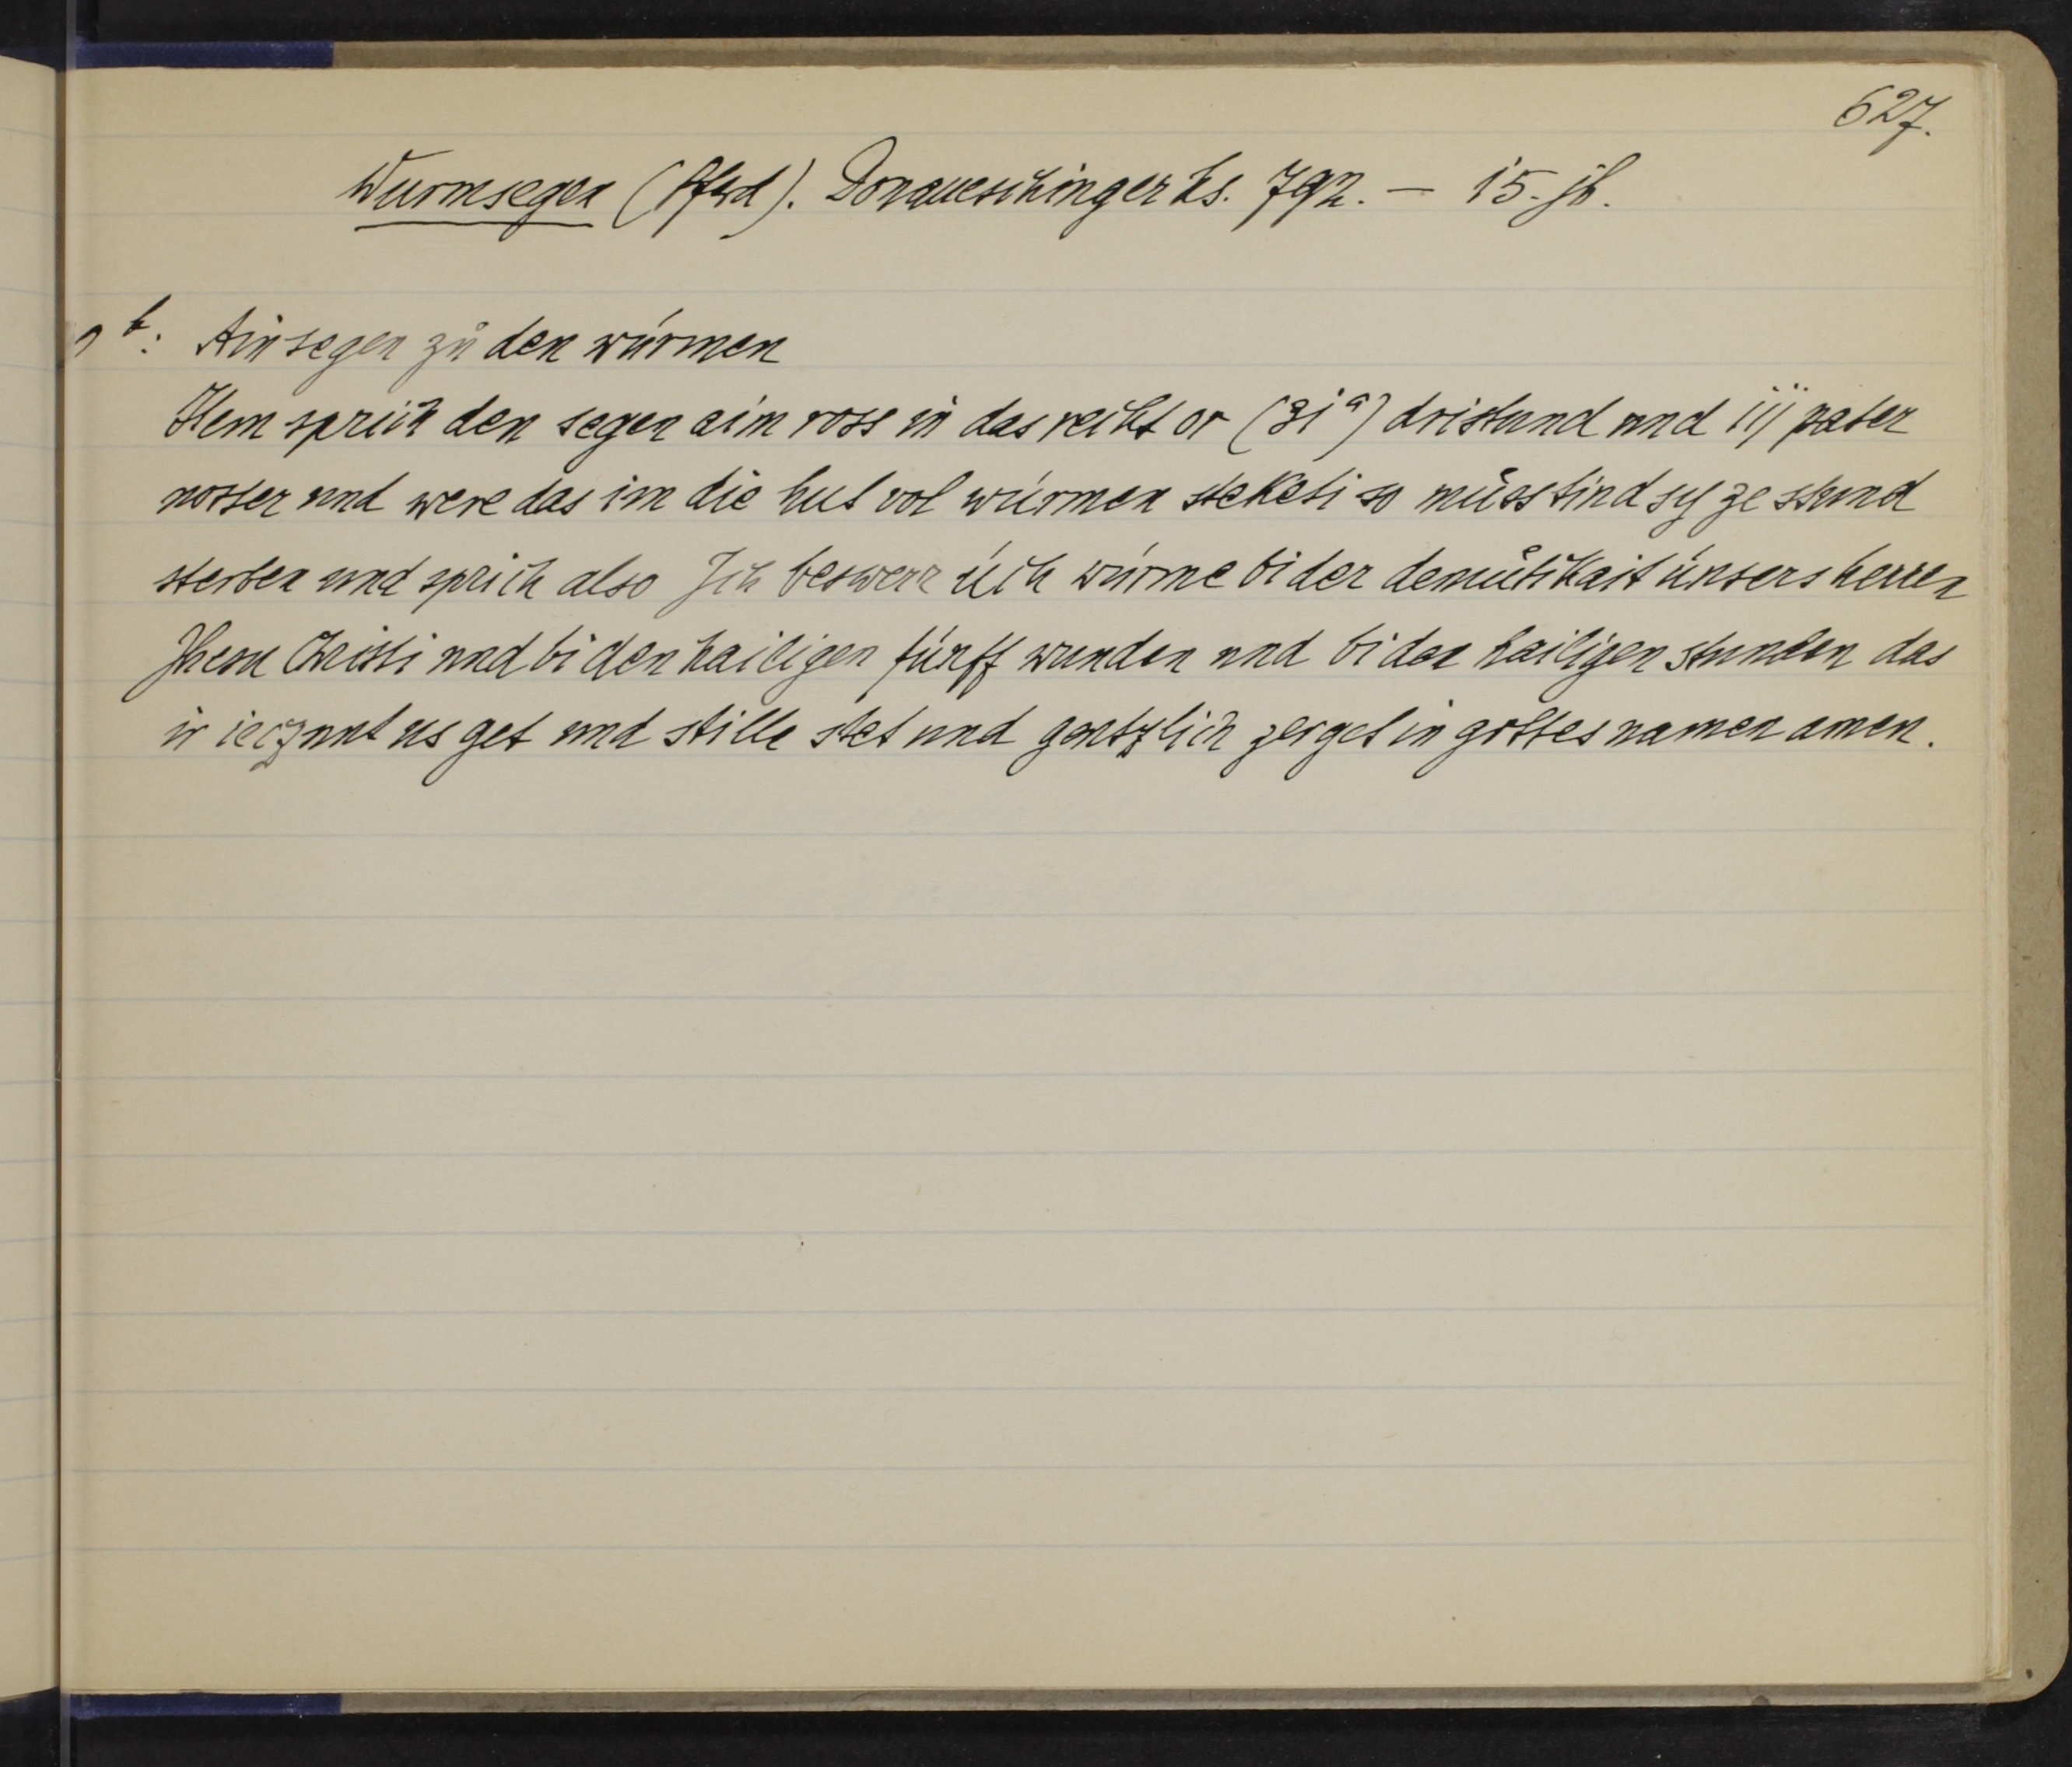 627.
Wurmsegen (Pferd). Donaueschinger hs. 792. — 15. jh.
b: Ain segen zů den würmen
Item sprich den segen aim ross in das recht or (31ᵃ) dristund und iij pater
noster und were das im die hut vol würmen steketi so müsstind sy ze stund
sterben und sprich also Ich beswerr üch würme bi der demütikait ünsers herren
Jhesu Christi und bi den hailigen fünff wunden und bi den hailigen stunden das
ir ieczunt us get und stille stet und gentzlich zerget in gottes namen amen.